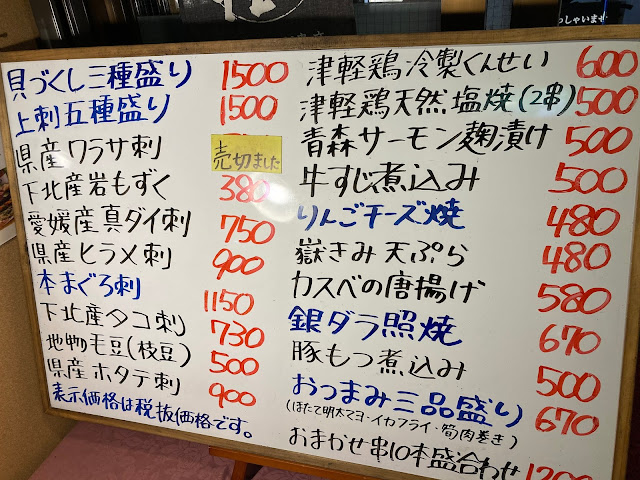 っしゃいませ
貝づくし三種盛り 1500
上刺五種盛り 1500
県産ワラサ刺 売切ました
下北産岩もずく 380
愛媛産真ダイ刺 750
県産ヒラメ刺 900
本まぐろ刺 1150
下北産タコ刺 730
地物毛豆(枝豆) 500
県産ホタテ刺 900
表示価格は税抜価格です。
津軽鶏冷製くんせい 600
津軽鶏天然塩焼(2串) 500
青森サーモン麹漬け 500
牛すじ煮込み 500
りんごチーズ焼 480
嶽きみ天ぷら 480
カスベの唐揚げ 580
銀ダラ照焼 670
豚もつ煮込み 500
おつまみ三品盛り 670
(ほたて明太マヨ・イカフライ・筍肉巻き)
おまかせ串10本盛合わせ